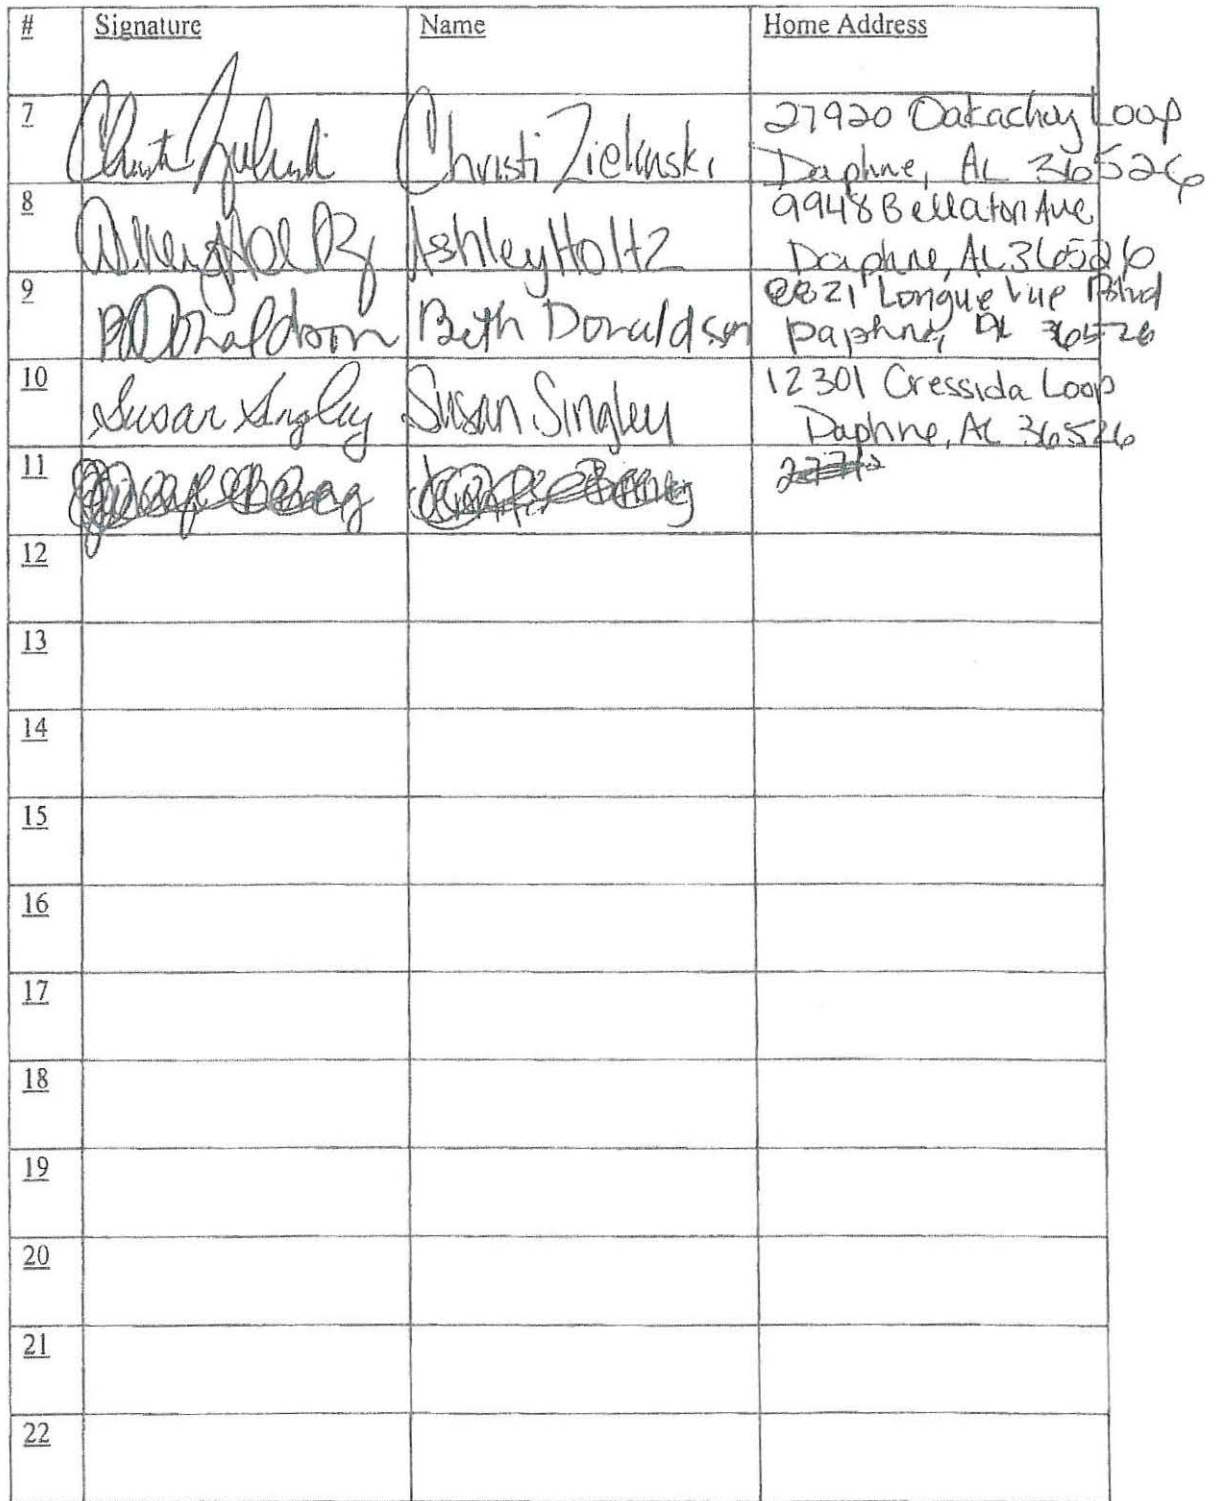 # Signature Name Home Address
7 Christi Zielinski Christi Zielinski 27920 Oakachoy Loop
Daphne, AL 36526
8 Ashley Holtz Ashley Holtz 9948 Bellaton Ave
Daphne, AL 36526
9 B Donaldson Beth Donaldson 8821 Longue Vue Blvd
Daphne, AL 36526
10 Susan Singley Susan Singley 12301 Cressida Loop
Daphne, AL 36526
11
12
13
14
15
16
17
18
19
20
21
22